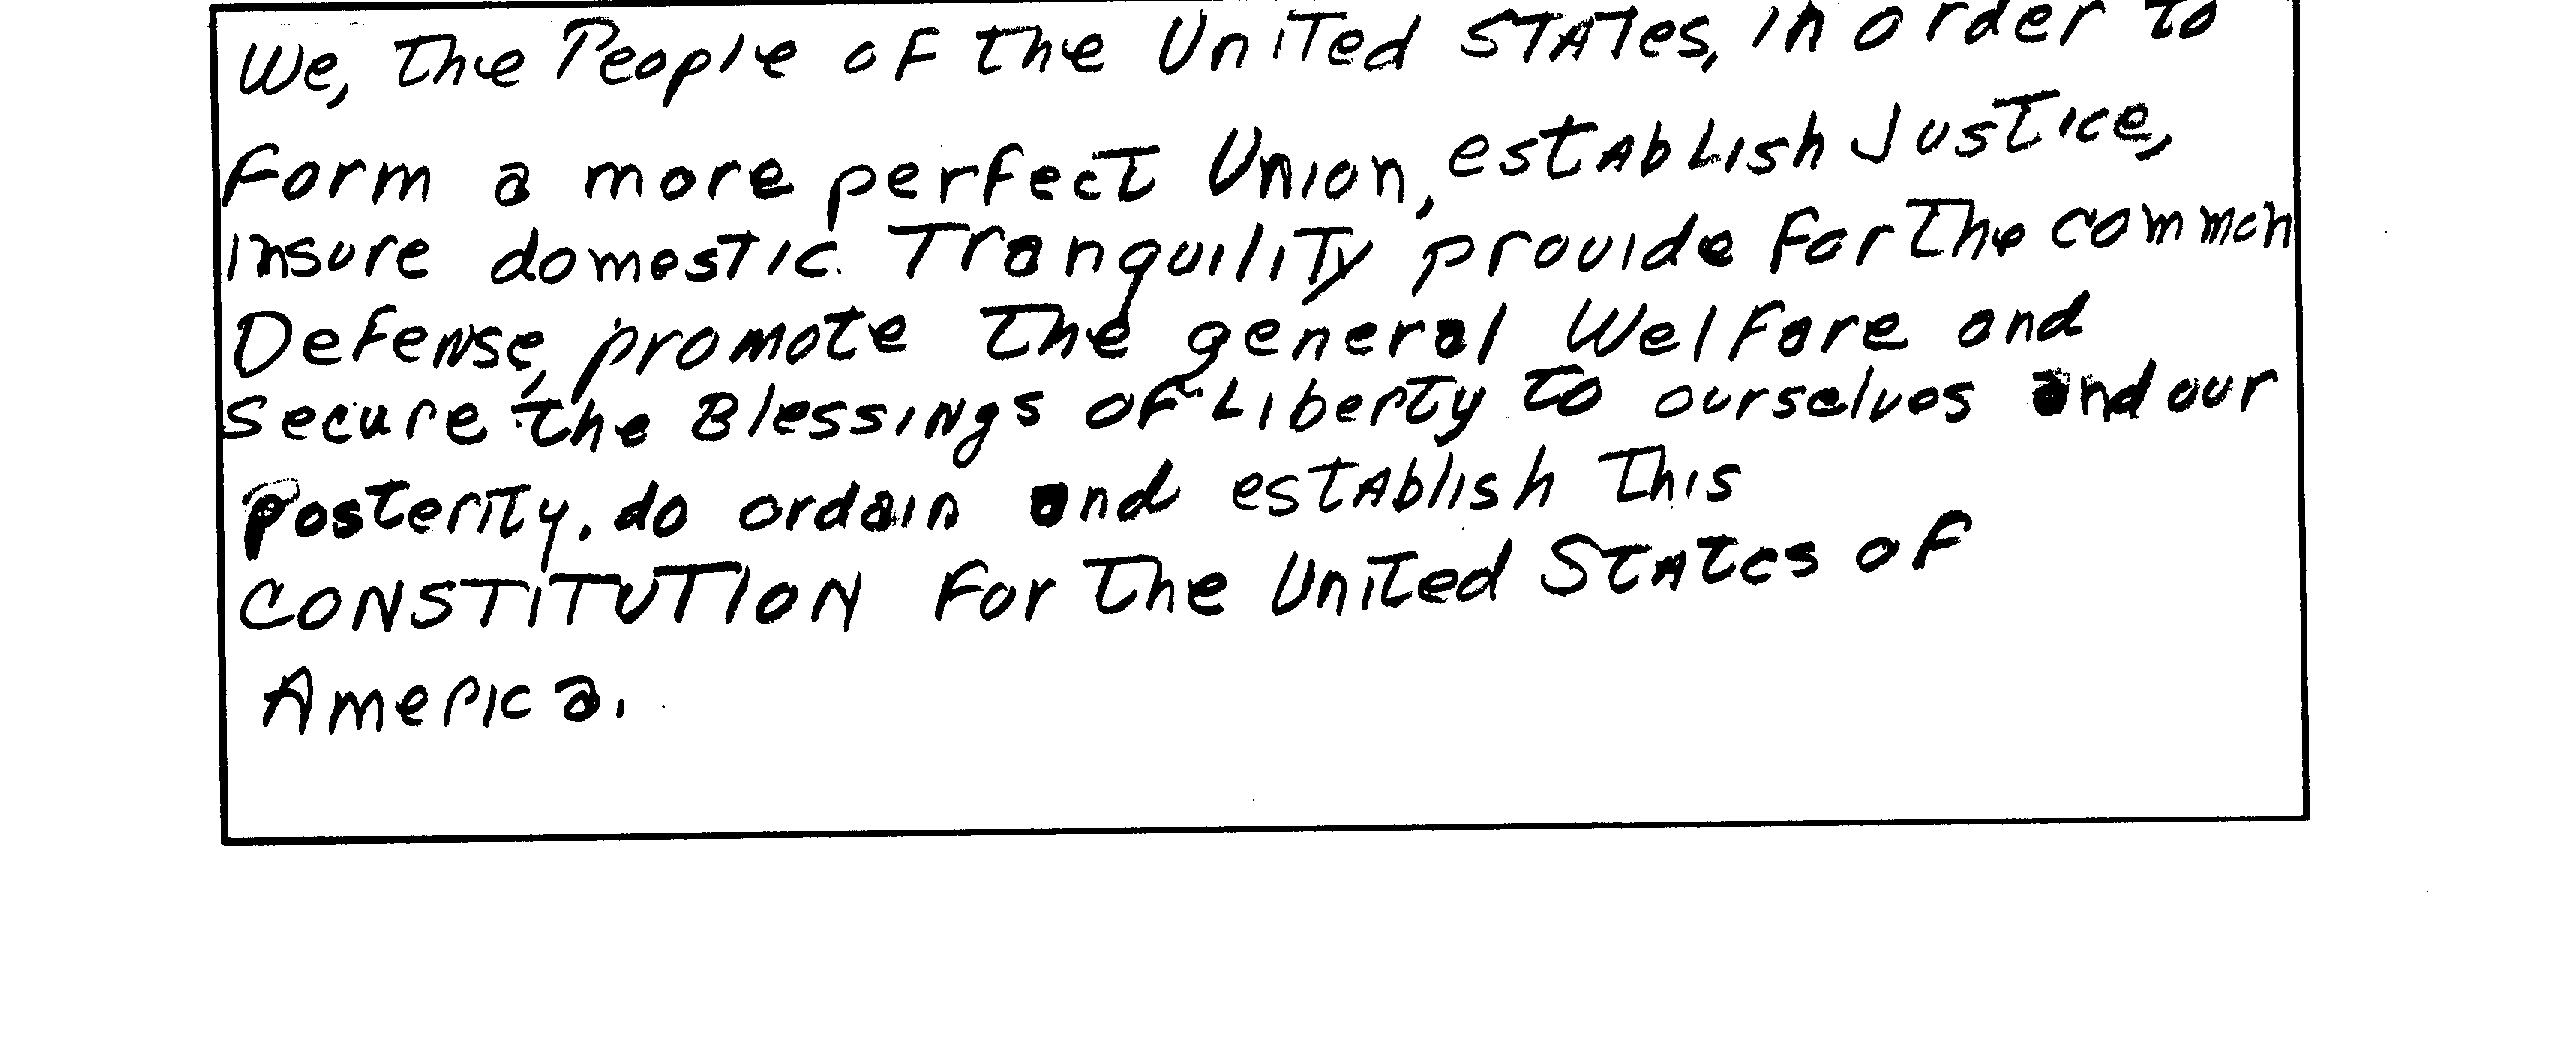 We, the People of the United States, in order to
form a more perfect Union, establish Justice,
insure domestic Tranquility provide for the common
Defense, promote the general Welfare and
Secure the Blessings of Liberty to ourselves and our
posterity. do ordain and establish this
CONSTITUTION for the United States of
America.